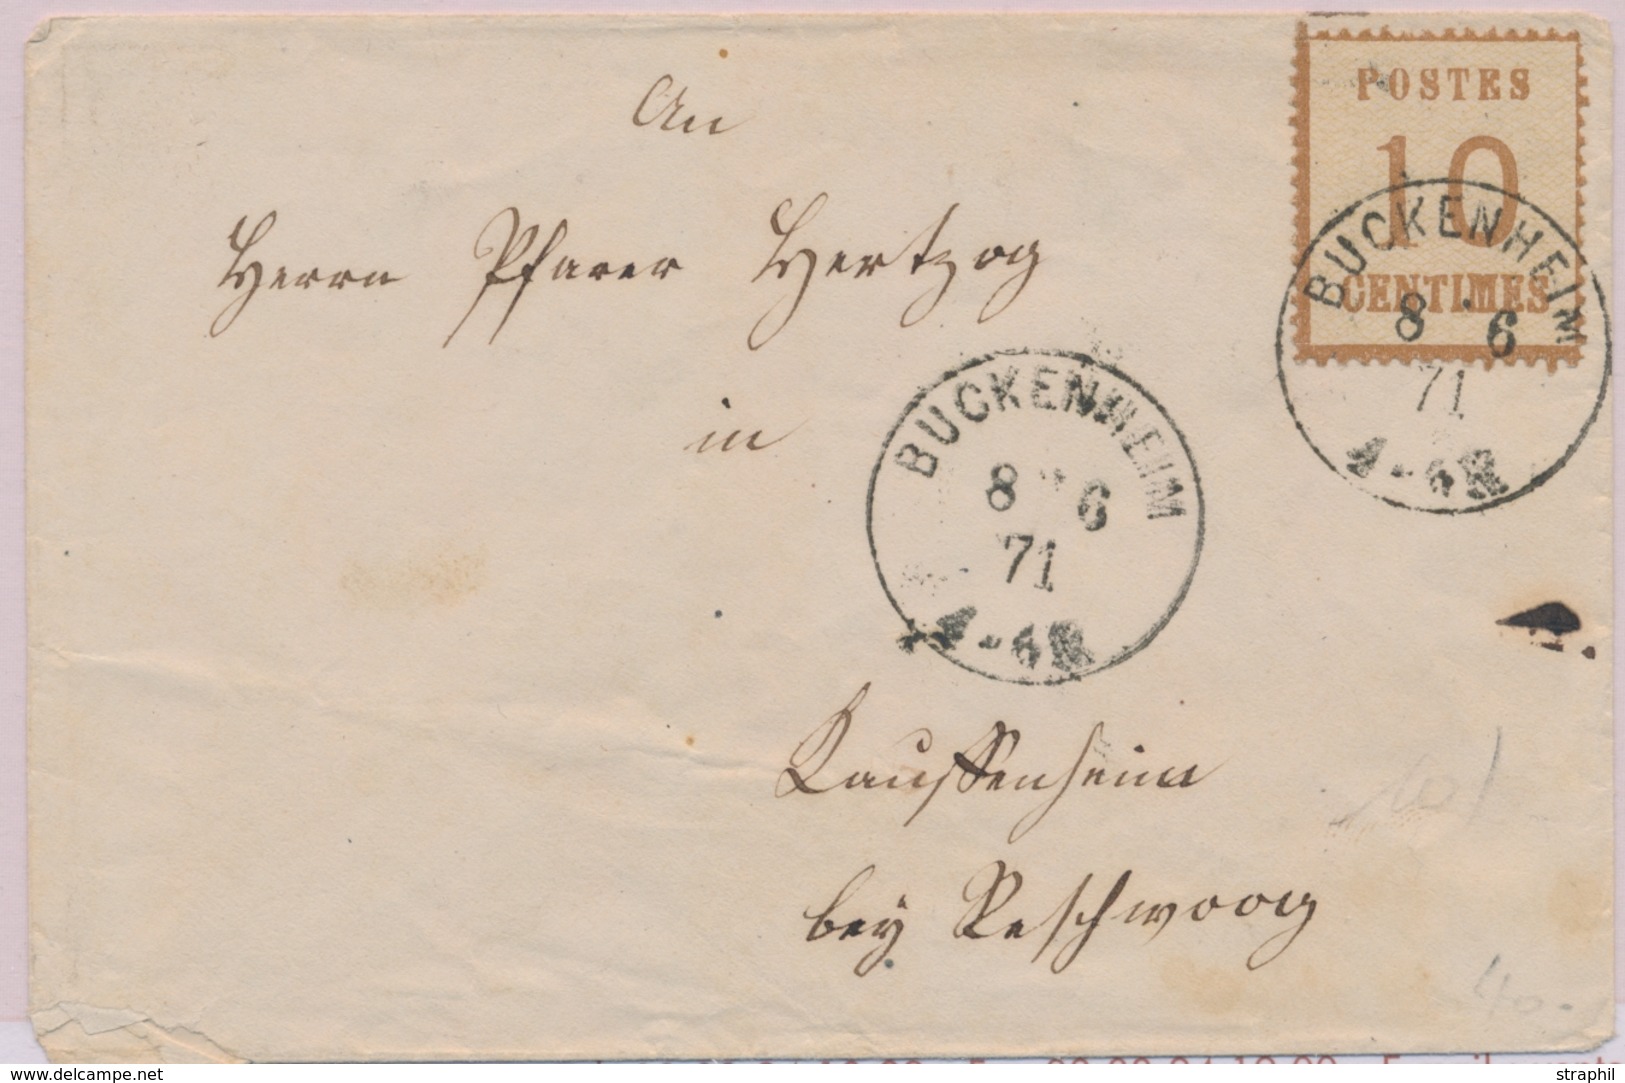 An
Herrn Pfarer Hertzog
in
Kauffenheim
bey Reschwoog
POSTES
10
CENTIMES
BUCKENHEIM
8 6
71
4-6N
BUCKENHEIM
8 6
71
4-6N
40-
delcampe.net
straphil